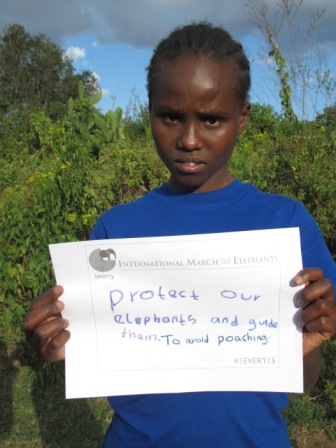 iworry
INTERNATIONAL MARCH for ELEPHANTS
protect our
elephants and guide
them. To avoid poaching.
#IEVERY15